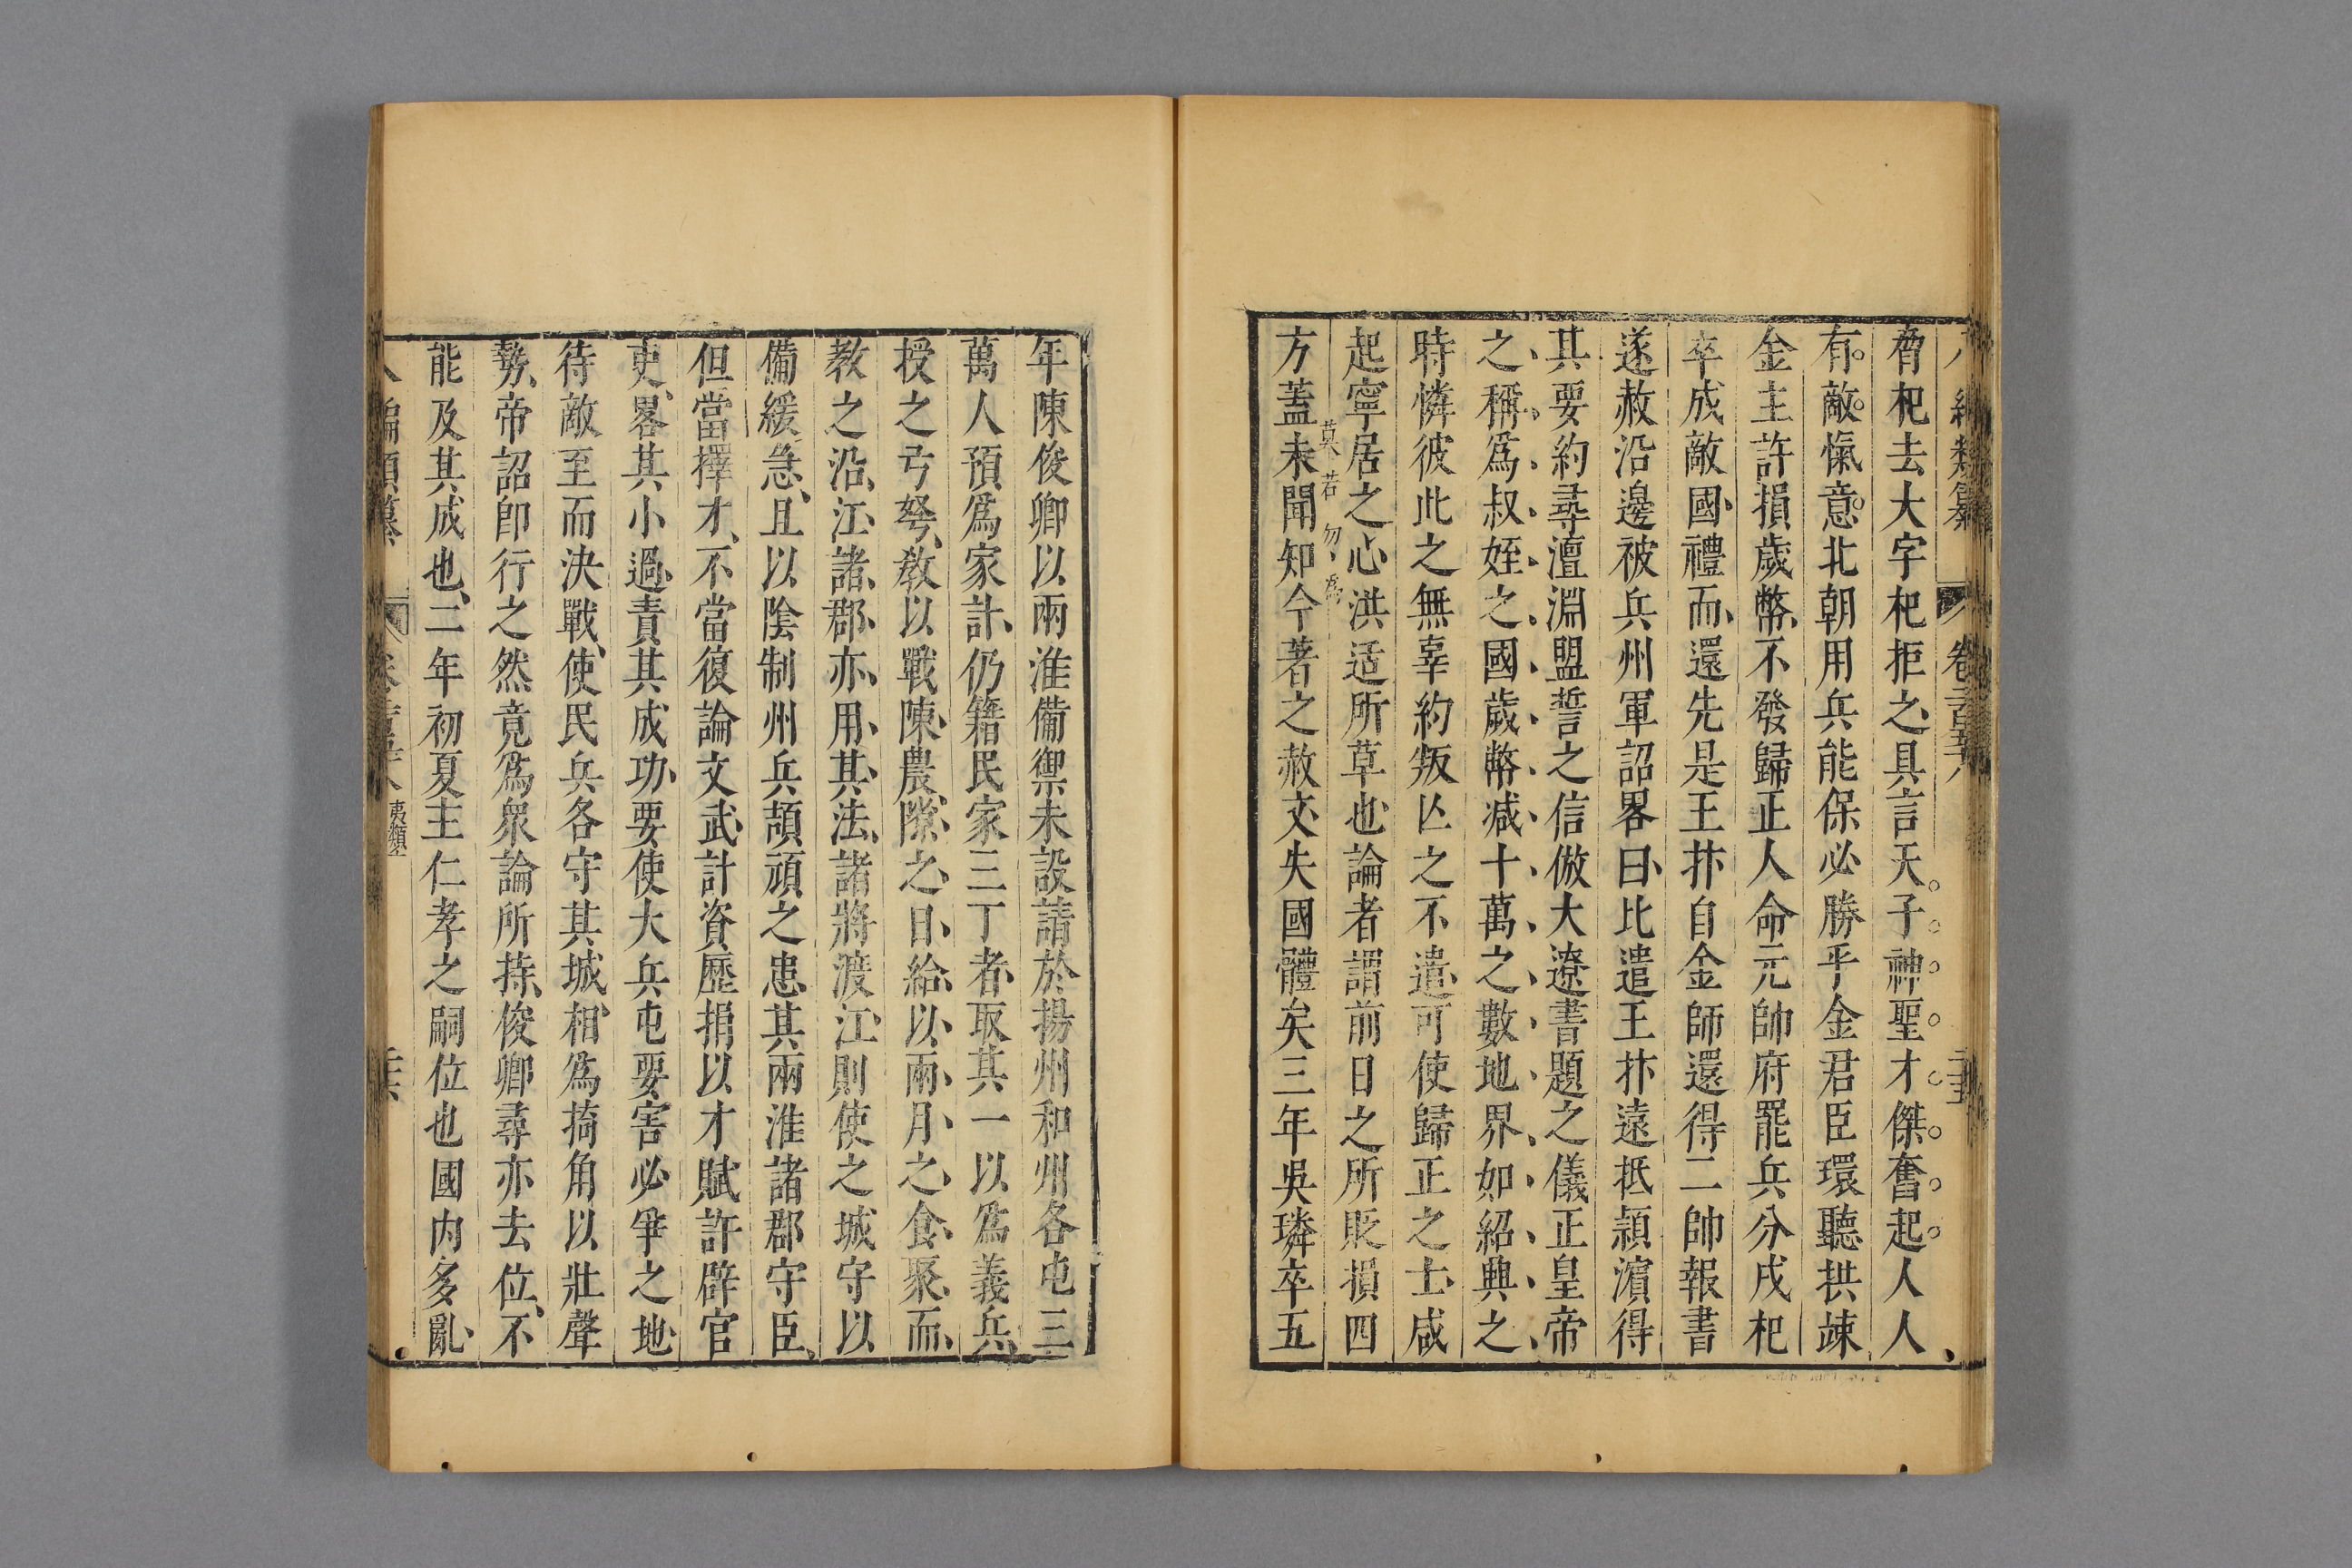 編類纂 卷二百五十八 二十五
脅杞去大字杞拒之具言天子神聖才傑奮起人人
有敵愾意北朝用兵能保必勝乎金君臣環聽拱竦
金主許損歲幣不發歸正人命元帥府罷兵分戍杞
卒成敵國禮而還先是王抃自金師還得二帥報書
遂赦沿邊被兵州軍詔畧曰比遣王抃遠抵潁濵得
其要約尋澶淵盟誓之信倣大遼書題之儀正皇帝
之稱爲叔姪之國歲幣减十萬之數地界如紹興之
時憐彼此之無辜約叛亾之不遣可使歸正之士咸
起寧居之心洪适所草也論者謂前日之所貶損四
莫若勿爲
方蓋未聞知今著之赦文失國體矣三年吳璘卒五
年陳俊卿以兩淮備禦未設請於揚州和州各屯三
萬人預爲家計仍籍民家三丁者取其一以爲義兵
授之弓弩敎以戰陳農隙之日給以兩月之食聚而
教之沿江諸郡亦用其法諸將渡江則使之城守以
備緩急且以陰制州兵頡頑之患其兩淮諸郡守臣
但當擇才不當復論文武計資歷捐以才賦許辟官
吏畧其小過責其成功要使大兵屯要害必爭之地
待敵至而決戰使民兵各守其城相爲掎角以壯聲
勢帝詔卽行之然竟爲衆論所持俊卿尋亦去位不
能及其成也二年初夏主仁孝之嗣位也國内多亂
八編類纂 夷類 二十六